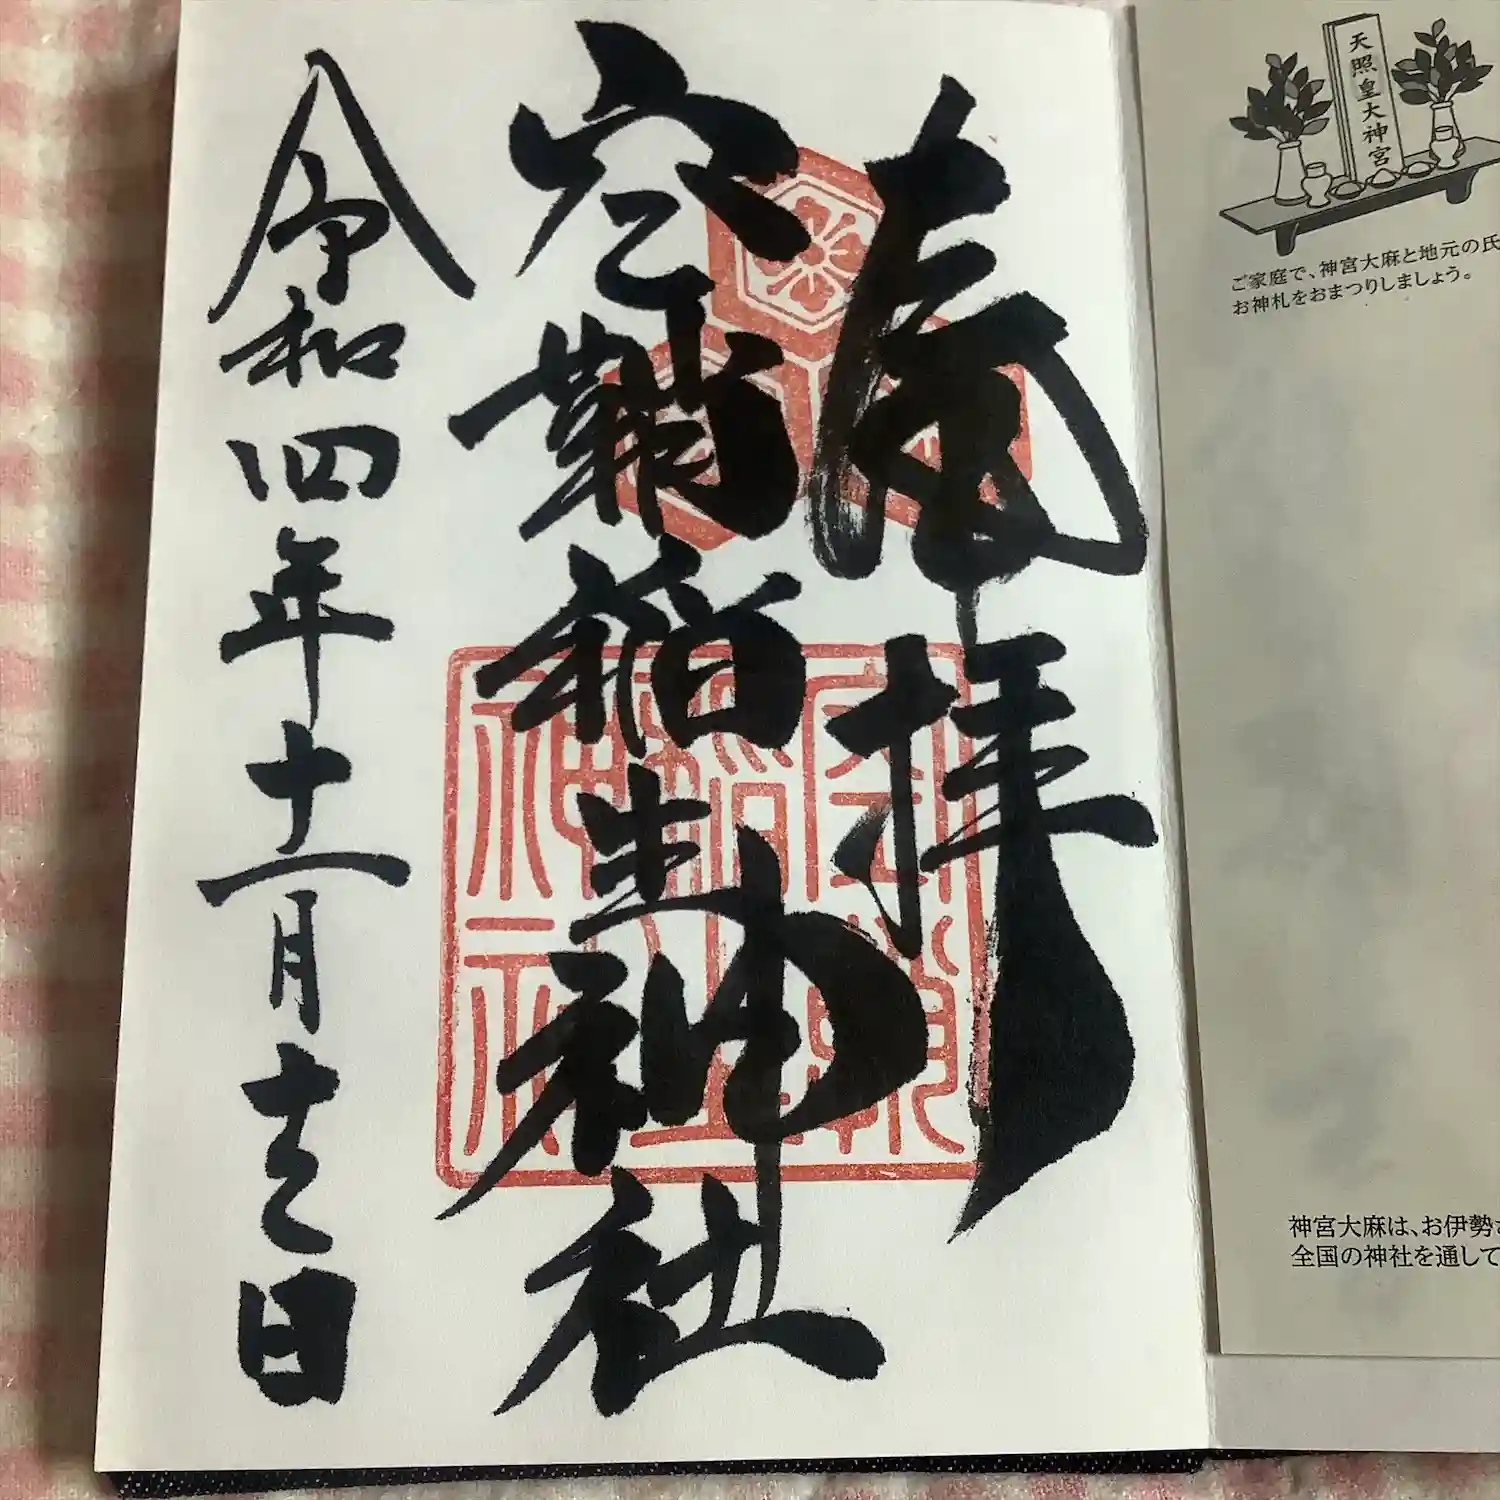 奉拝
空鞘稲生神社
令和四年十一月
日
空鞘
稲生
神社
天照皇大神宮
ご家庭で、神宮大麻と地元の氏
お神札をおまつりしましょう。
神宮大麻は、お伊勢
全国の神社を通して